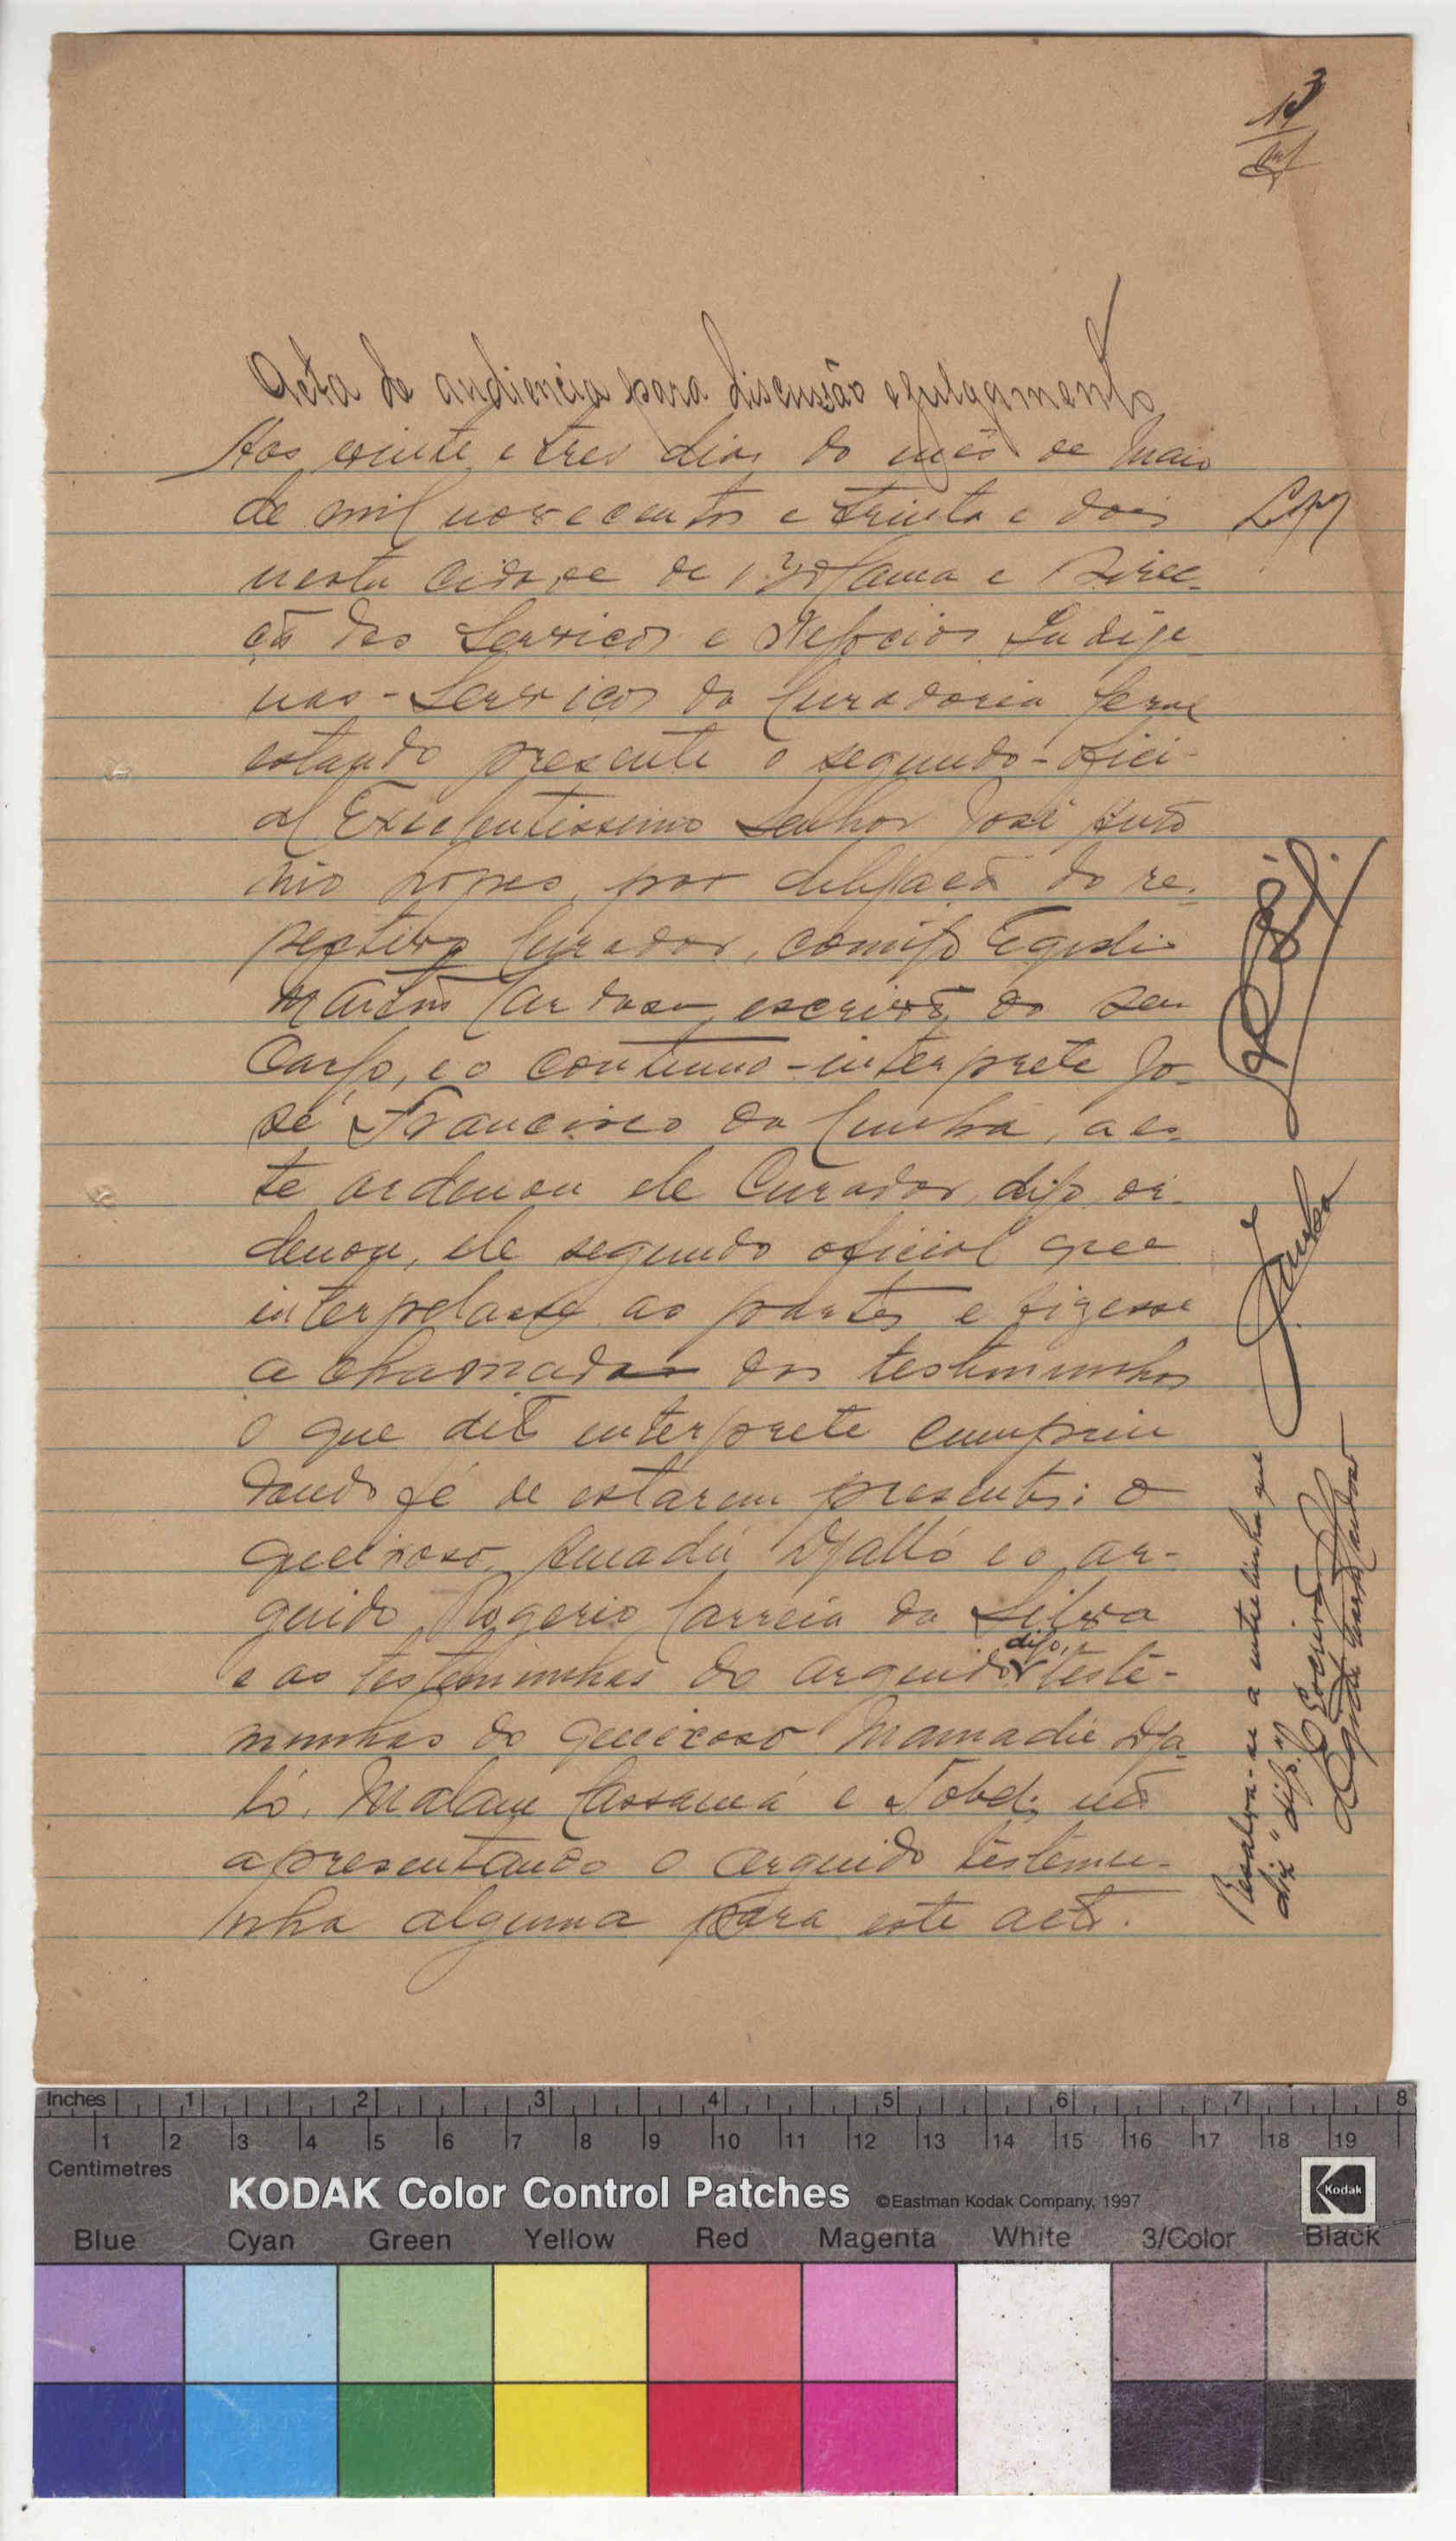 13
Acta de audiencia para discussão e julgamento
Aos vinte e tres dias do mês de Maio
de mil novecentos e trinta e dois
nesta cidade de Bolama e Direc-
çã dos Serviços e Negocios Indige
nas - Serviços da Curadoria Geral
estando presente o segundo-ofici-
al Excelentissimo Senhor José Antó
nio Lopes, por delegaçã do re-
pectivo Curador, comigo Egidio
Martins Cardoso, escrivã do seu
Cargo, e o continuo-interprete Jo-
sé Francisco da Cunha, a es-
te ordenou ele Curador, digo or-
denou, ele segundo oficial que
interpelasse as partes e fizesse
a chamada das testimunhas
o que dito interprete cumpriu
dando fé de estarem presentes: o
queixoso, Amadú Djalló e o ar-
guido Rogerio Correia da Silva
e as testemunhas do arguido, digo, teste-
munhas do queixoso Mamadú Dja-
ló, Malam Cassamá e nã
apresentando o arguido testemu-
nha alguma para este acto.
J. Cunha
Ressalva-se a entrelinha que
diz "digo,"
O Escrivã
Inches 1 2 3 4 5 6 7 8
Centimetres 1 2 3 4 5 6 7 8 9 10 11 12 13 14 15 16 17 18 19
KODAK Color Control Patches ©Eastman Kodak Company, 1997 Kodak
Blue Cyan Green Yellow Red Magenta White 3/Color Black